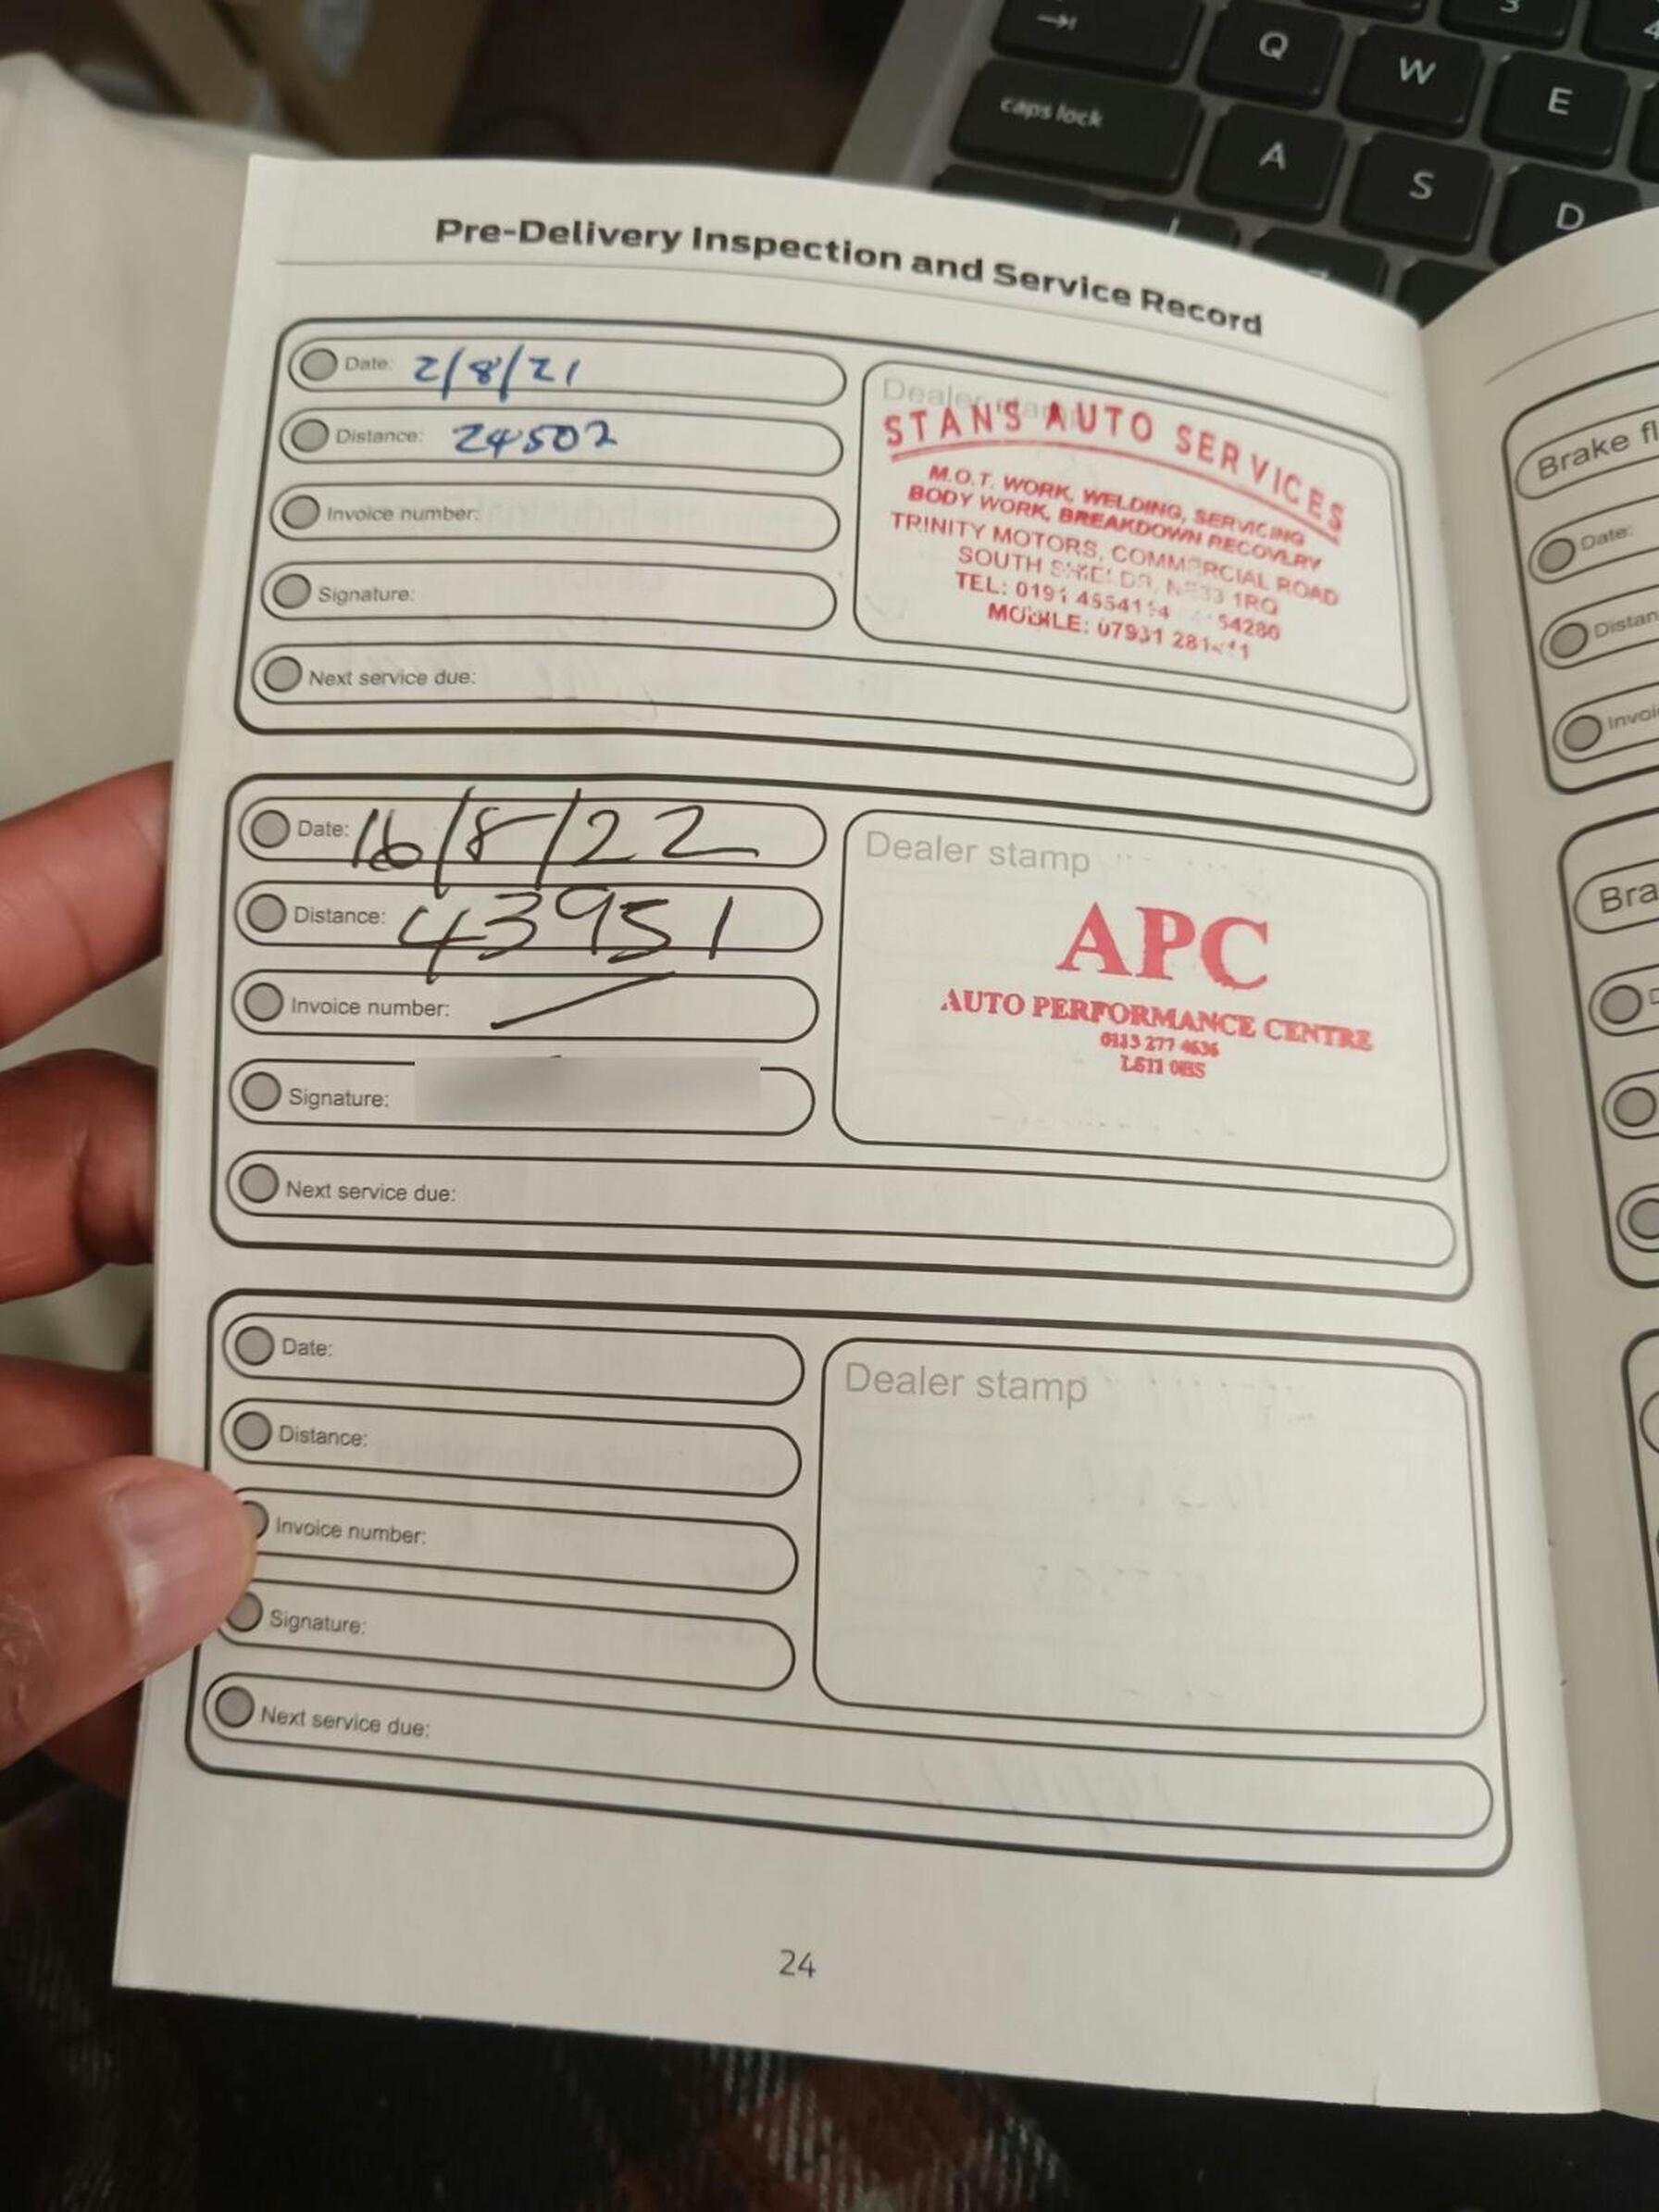 Q
W
E
caps lock
A
S
D
Pre-Delivery Inspection and Service Record
Date: 2/8/21
Distance: 24502
Invoice number:
Signature:
Next service due:
Dealer stamp
STAN'S AUTO SERVICES
M.O.T. WORK, WELDING, SERVICING
BODY WORK, BREAKDOWN RECOVERY
TRINITY MOTORS, COMMERCIAL ROAD
SOUTH SHIELDS, NE33 1RQ
TEL: 0191
MOBILE: 07931
Date: 16/8/22
Distance: 43951
Invoice number:
Signature:
Next service due:
Dealer stamp
APC
AUTO PERFORMANCE CENTRE
0113 277 4636
LS11
Date:
Distance:
Invoice number:
Signature:
Next service due:
Dealer stamp
24
Brake fl
Date:
Distan
Invoi
Bra